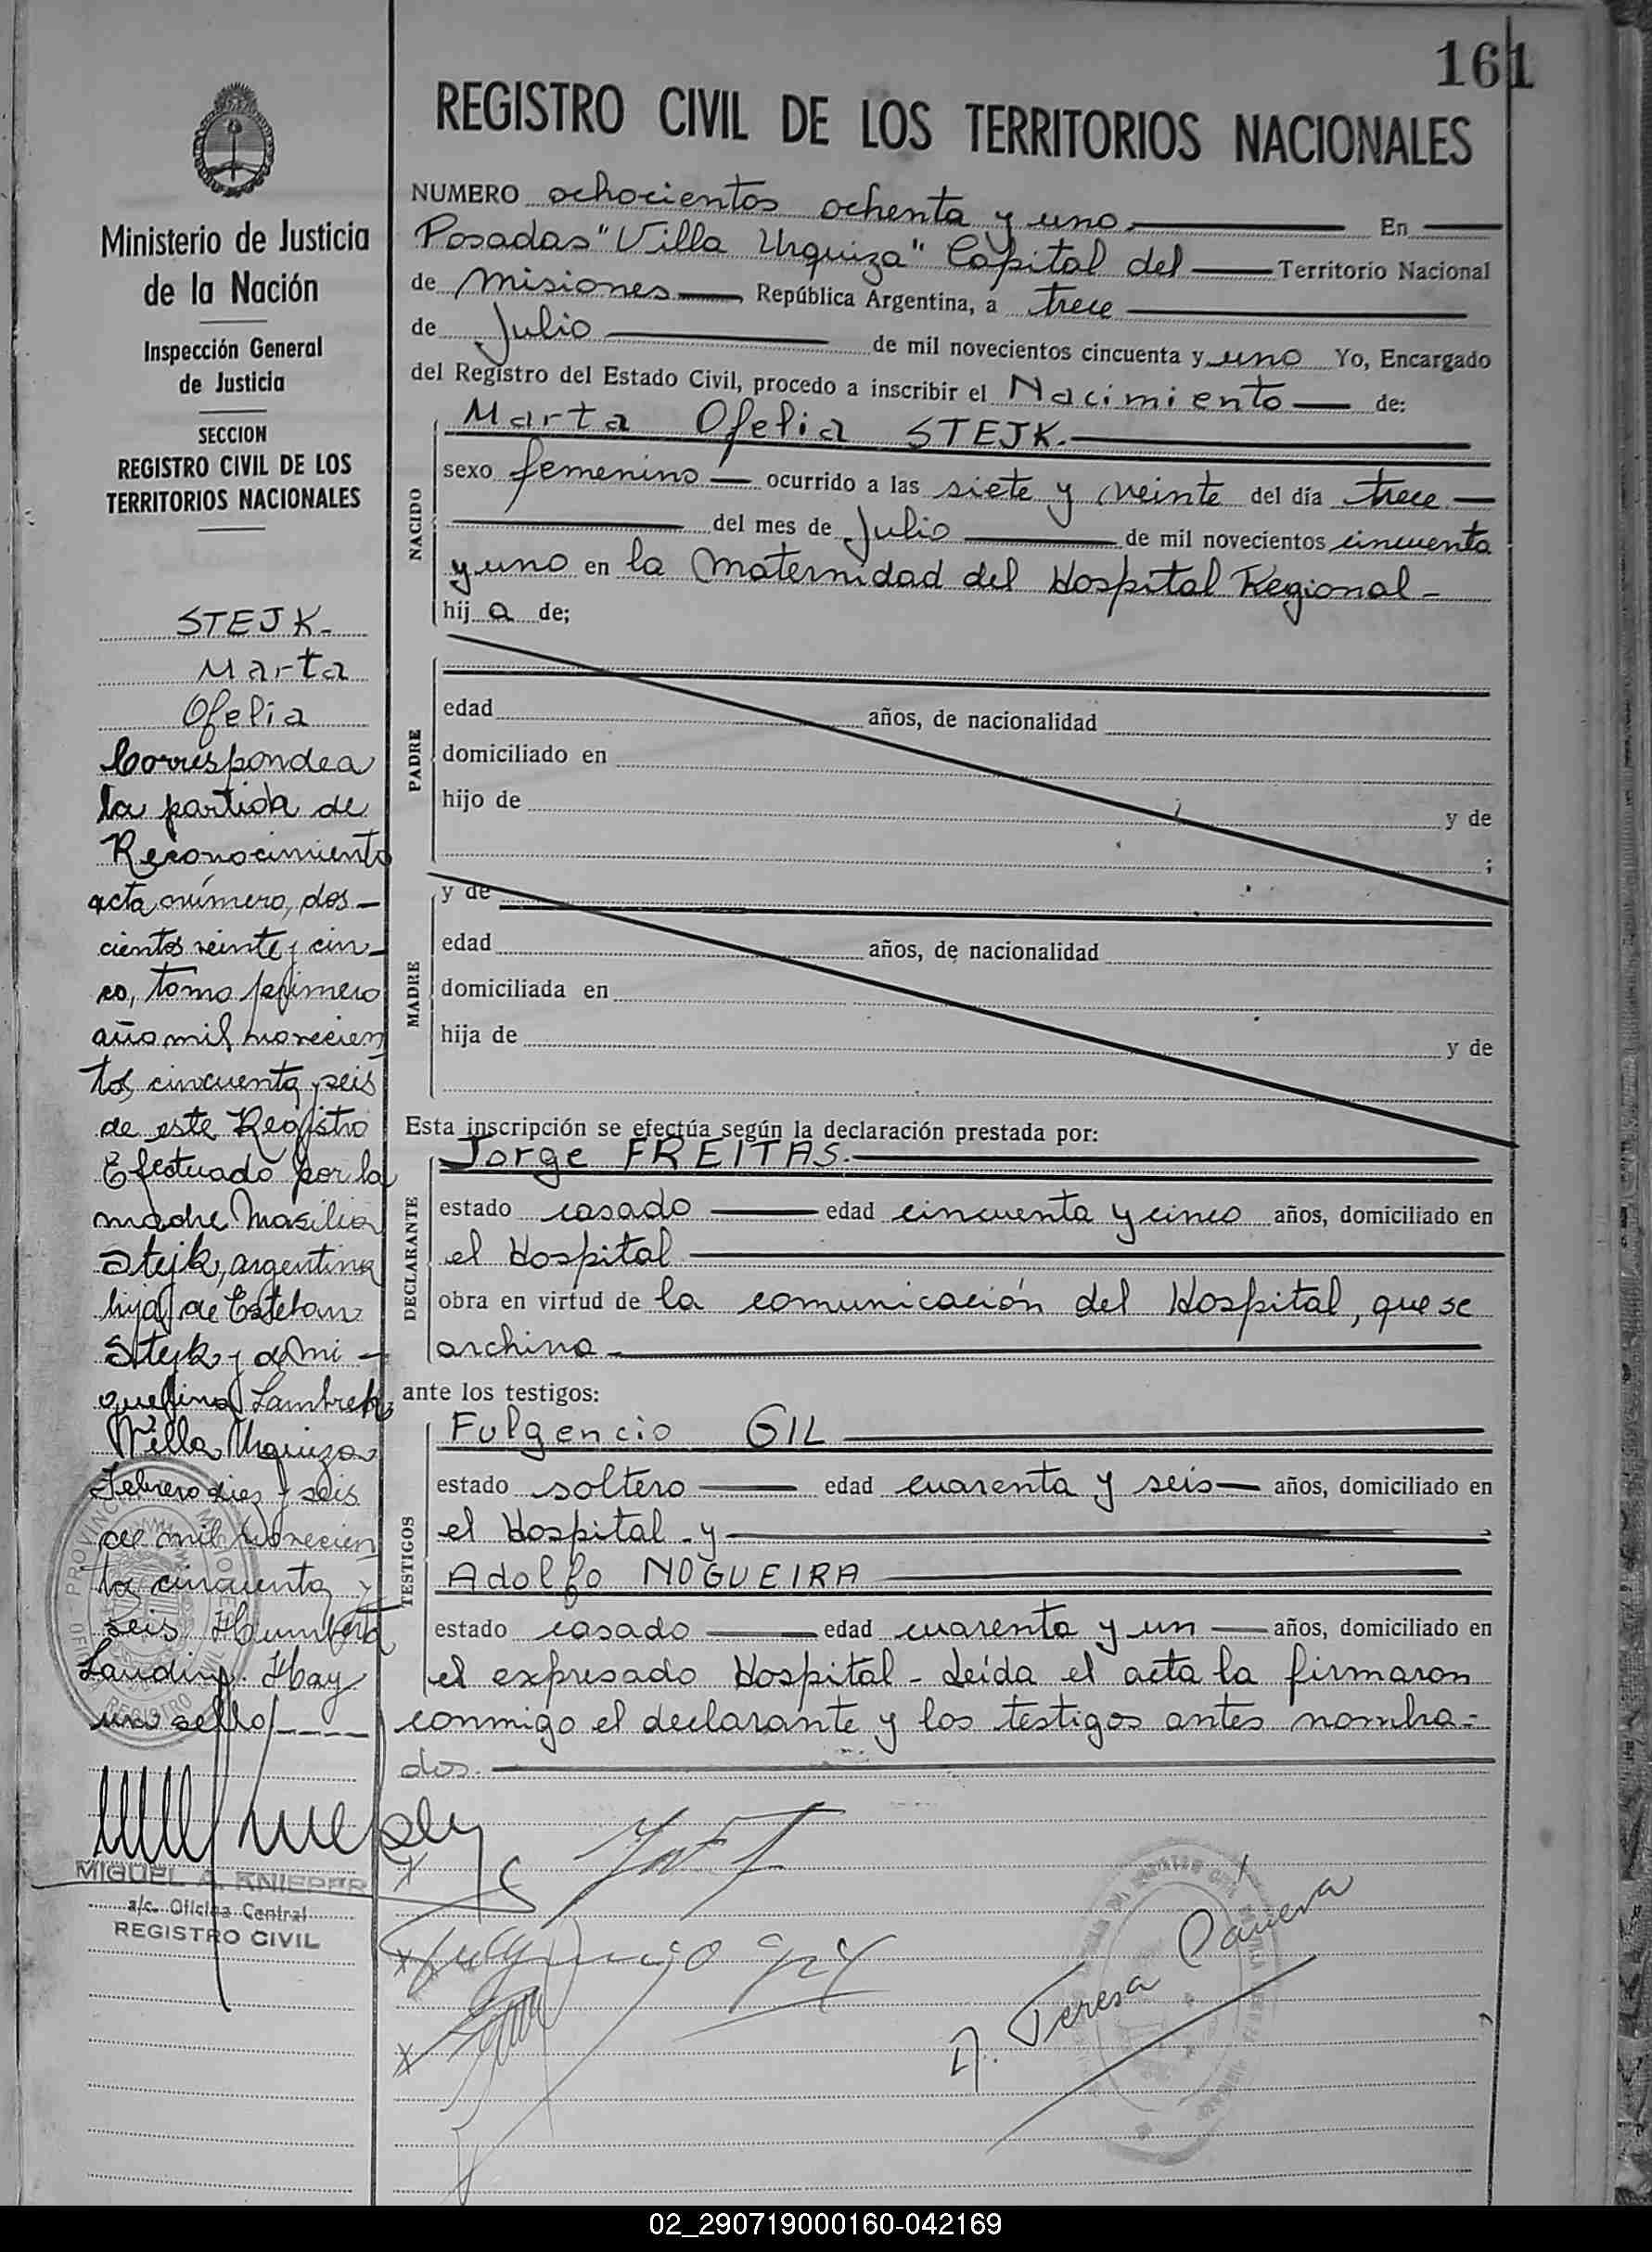 161
REGISTRO CIVIL DE LOS TERRITORIOS NACIONALES
Ministerio de Justicia
de la Nación
Inspección General
de Justicia
SECCION
REGISTRO CIVIL DE LOS
TERRITORIOS NACIONALES
STEJK.
Marta
Ofelia
Corresponde a
la partida de
Reconocimiento
acta número, dos-
cientos veinte y cin-
co, tomo primero
año mil novecien
tos cincuenta y seis
de este Registro
Efectuado por la
madre Masilia
Stejk, argentina
hija de Esteban
Stejk y de Mi-
quelina Lambrek
Villa Urquiza
Febrero diez y seis
de mil novecien
tos cincuenta y
seis. Humberto
Landiny. Hay
un sello/----
MIGUEL A. KNIEPER
a/c. Oficina Central
REGISTRO CIVIL
NUMERO ochocientos ochenta y uno En
Posadas "Villa Urquiza" Capital del Territorio Nacional
de Misiones República Argentina, a trece
de Julio de mil novecientos cincuenta y uno Yo, Encargado
del Registro del Estado Civil, procedo a inscribir el Nacimiento de:
NACIDO
Marta Ofelia STEJK.
sexo femenino ocurrido a las siete y veinte del día trece
del mes de Julio de mil novecientos cincuenta
y uno en la Maternidad del Hospital Regional-
hija de;
PADRE
edad años, de nacionalidad
domiciliado en
hijo de y de
;
MADRE
y de
edad años, de nacionalidad
domiciliada en
hija de y de
Esta inscripción se efectúa según la declaración prestada por:
DECLARANTE
Jorge FREITAS.
estado casado edad cincuenta y cinco años, domiciliado en
el Hospital
obra en virtud de la comunicación del Hospital, que se
archiva
ante los testigos:
TESTIGOS
Fulgencio GIL
estado soltero edad cuarenta y seis años, domiciliado en
el Hospital - y
Adolfo NOGUEIRA
estado casado edad cuarenta y un años, domiciliado en
el expresado Hospital - Leída el acta la firmaron
conmigo el declarante y los testigos antes nombra-
dos.
Teresa
02_290719000160-042169